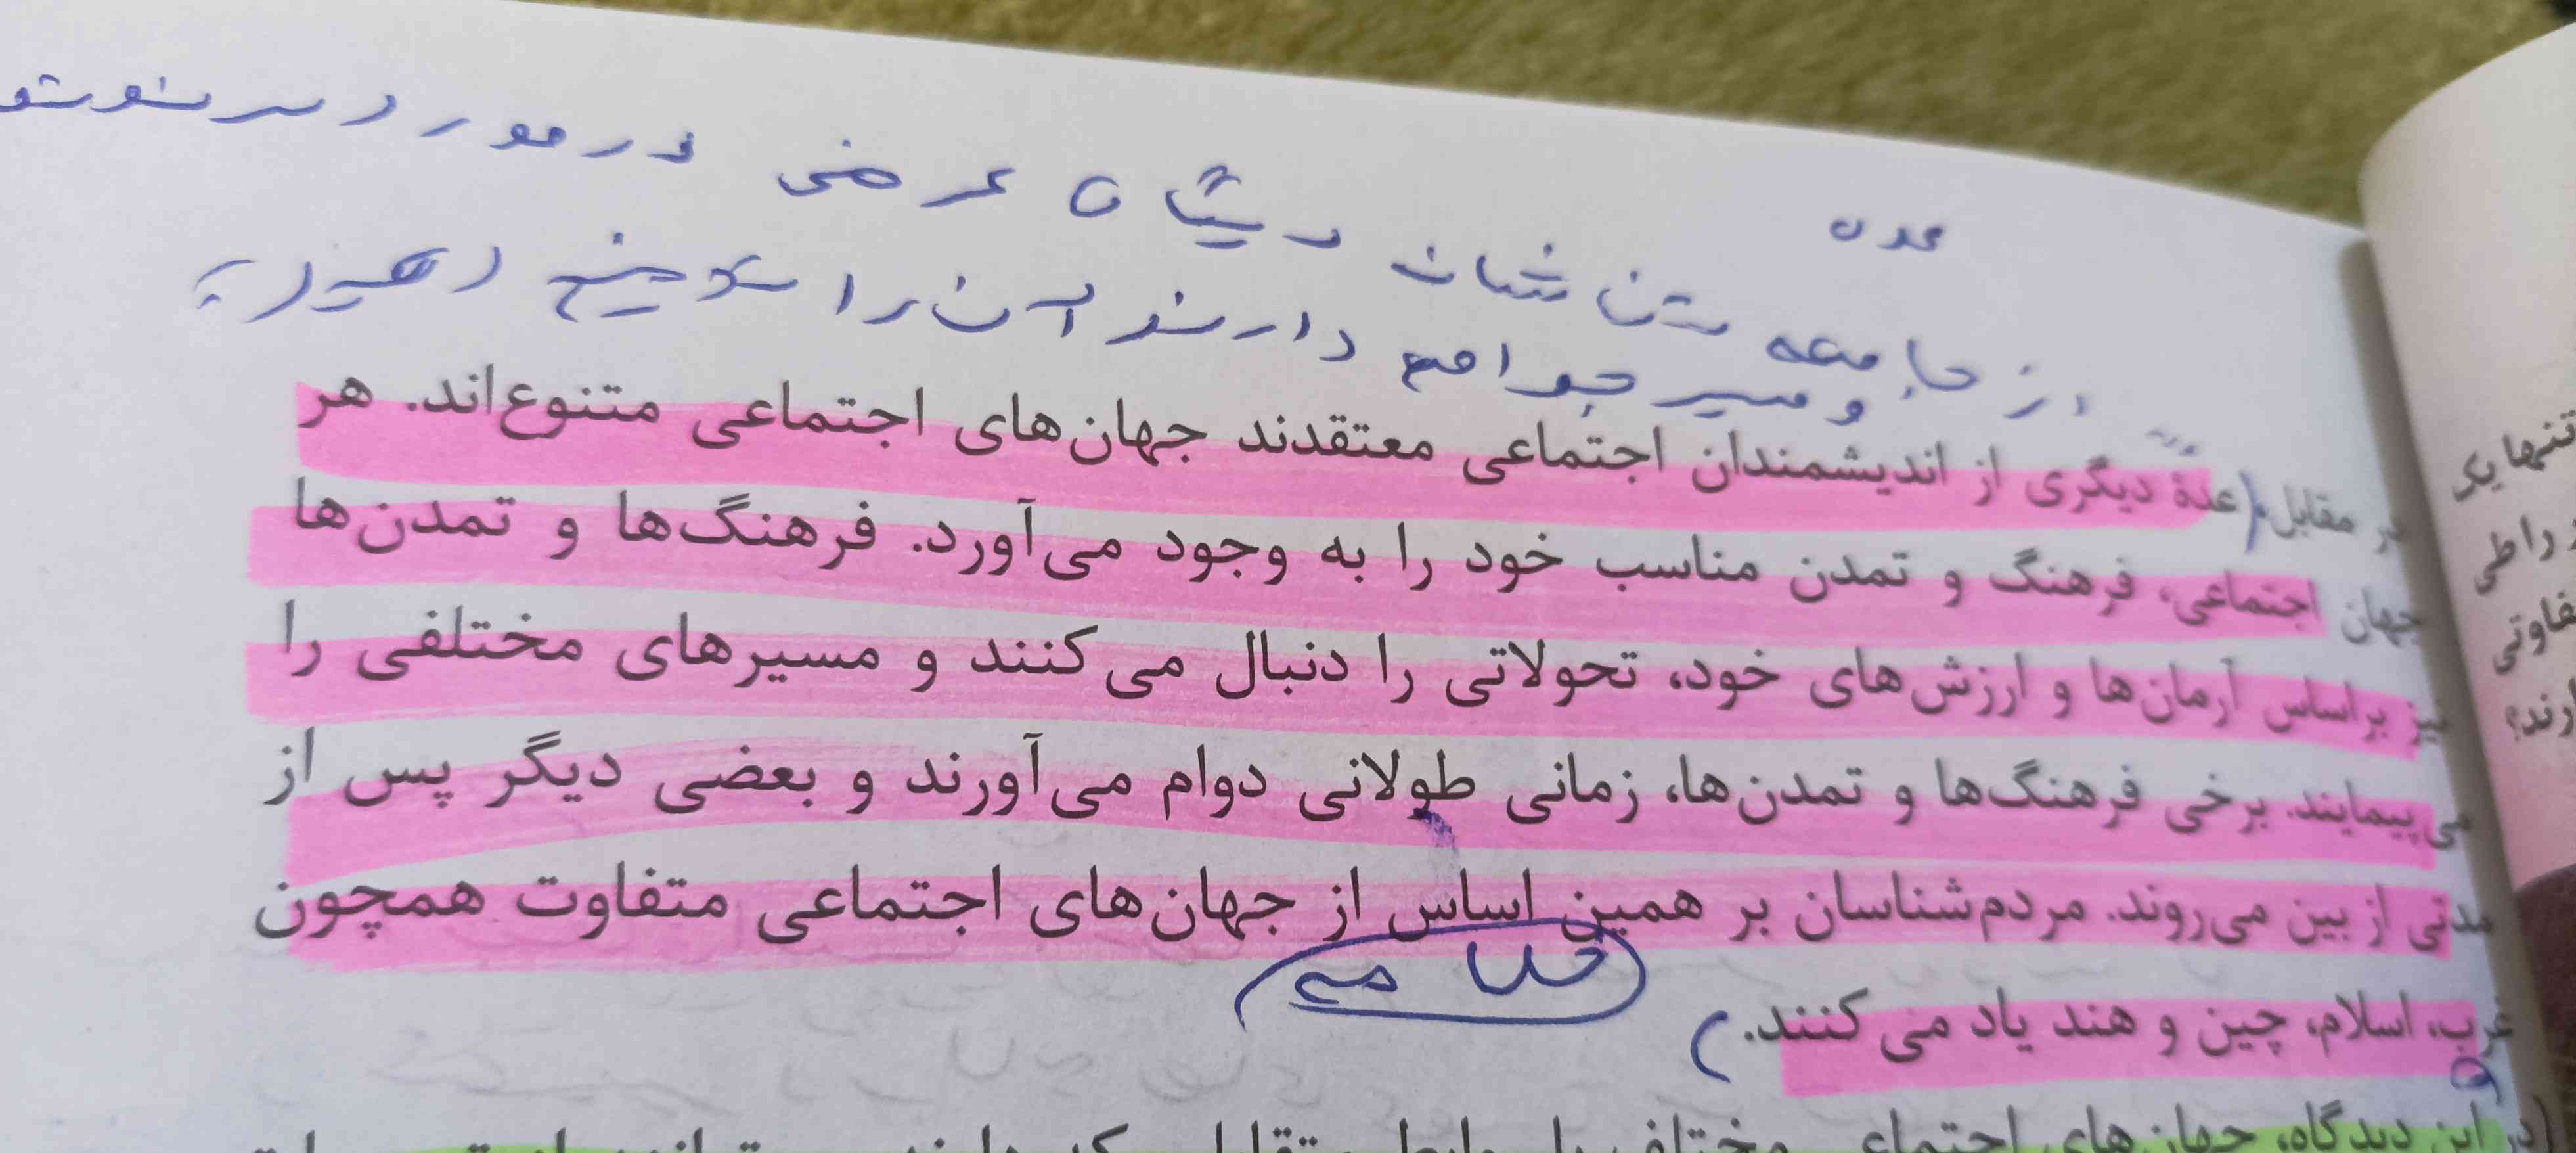 عده
از جامعه شناسان دیدگاه عرضی در مورد سرنوشت
و مسیر جوامع دارند آن را توضیح دهید؟
در مقابل، (عدهٔ دیگری از اندیشمندان اجتماعی معتقدند جهان‌های اجتماعی متنوع‌اند. هر
جهان اجتماعی، فرهنگ و تمدن مناسب خود را به وجود می‌آورد. فرهنگ‌ها و تمدن‌ها
نیز براساس آرمان‌ها و ارزش‌های خود، تحولاتی را دنبال می‌کنند و مسیرهای مختلفی را
می‌پیمایند. برخی فرهنگ‌ها و تمدن‌ها، زمانی طولانی دوام می‌آورند و بعضی دیگر پس از
مدتی از بین می‌روند. مردم‌شناسان بر همین اساس از جهان‌های اجتماعی متفاوت همچون
غرب، اسلام، چین و هند یاد می‌کنند.)
(در این دیدگاه، جهان‌های اجتماعی مختلف با روابط متقابلی که دارند
تنها یک
را طی